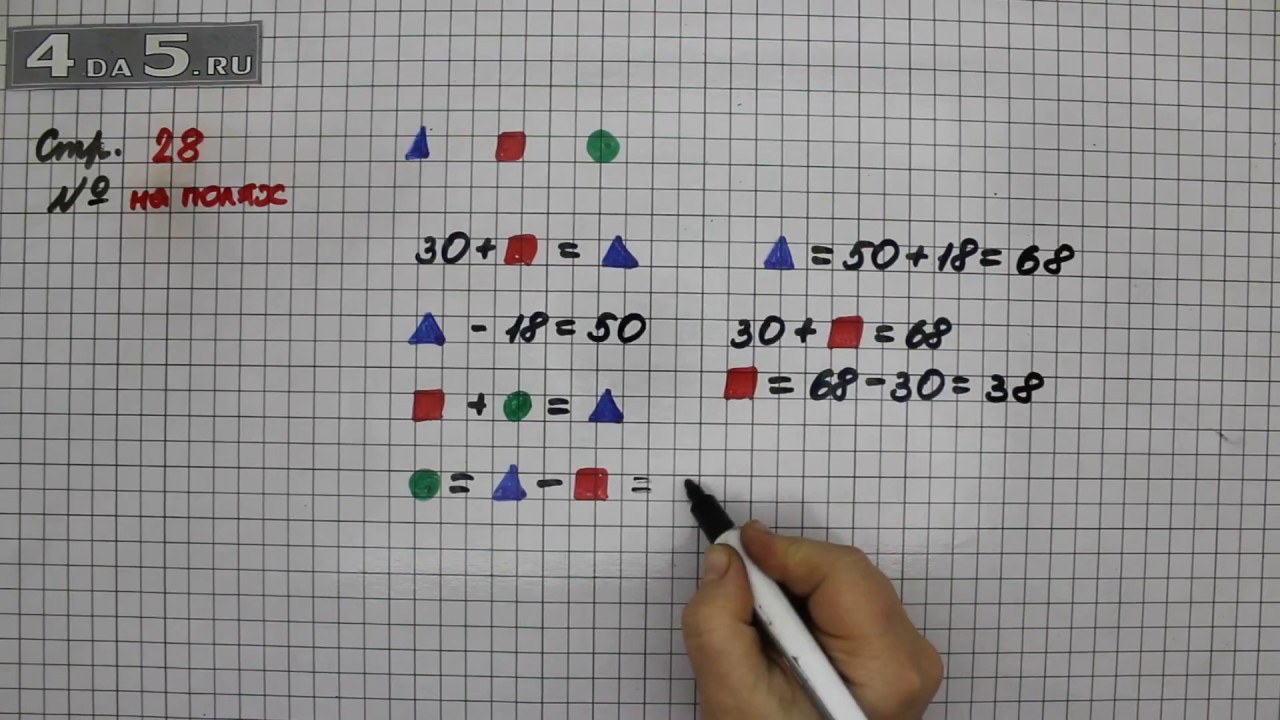 4DA5.RU
Стр. 28
№ на полях
30 + 🟥 = 🔺
🔺 = 50 + 18 = 68
🔺 - 18 = 50
30 + 🟥 = 68
🟥 = 68 - 30 = 38
🟥 + 🟢 = 🔺
🟢 = 🔺 - 🟥 =